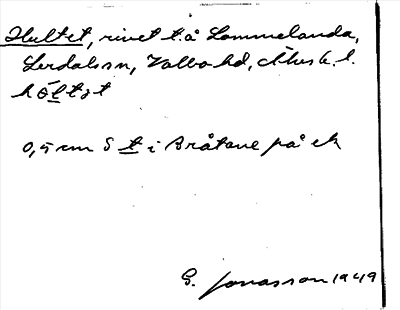 Hultet, rivet t. å Lommelanda,
Lerdals sn, Valbo hd, Älvsb. l.
hö̀ltət
0,5 cm S t i Bråtane på ek
G. Jonasson 1949